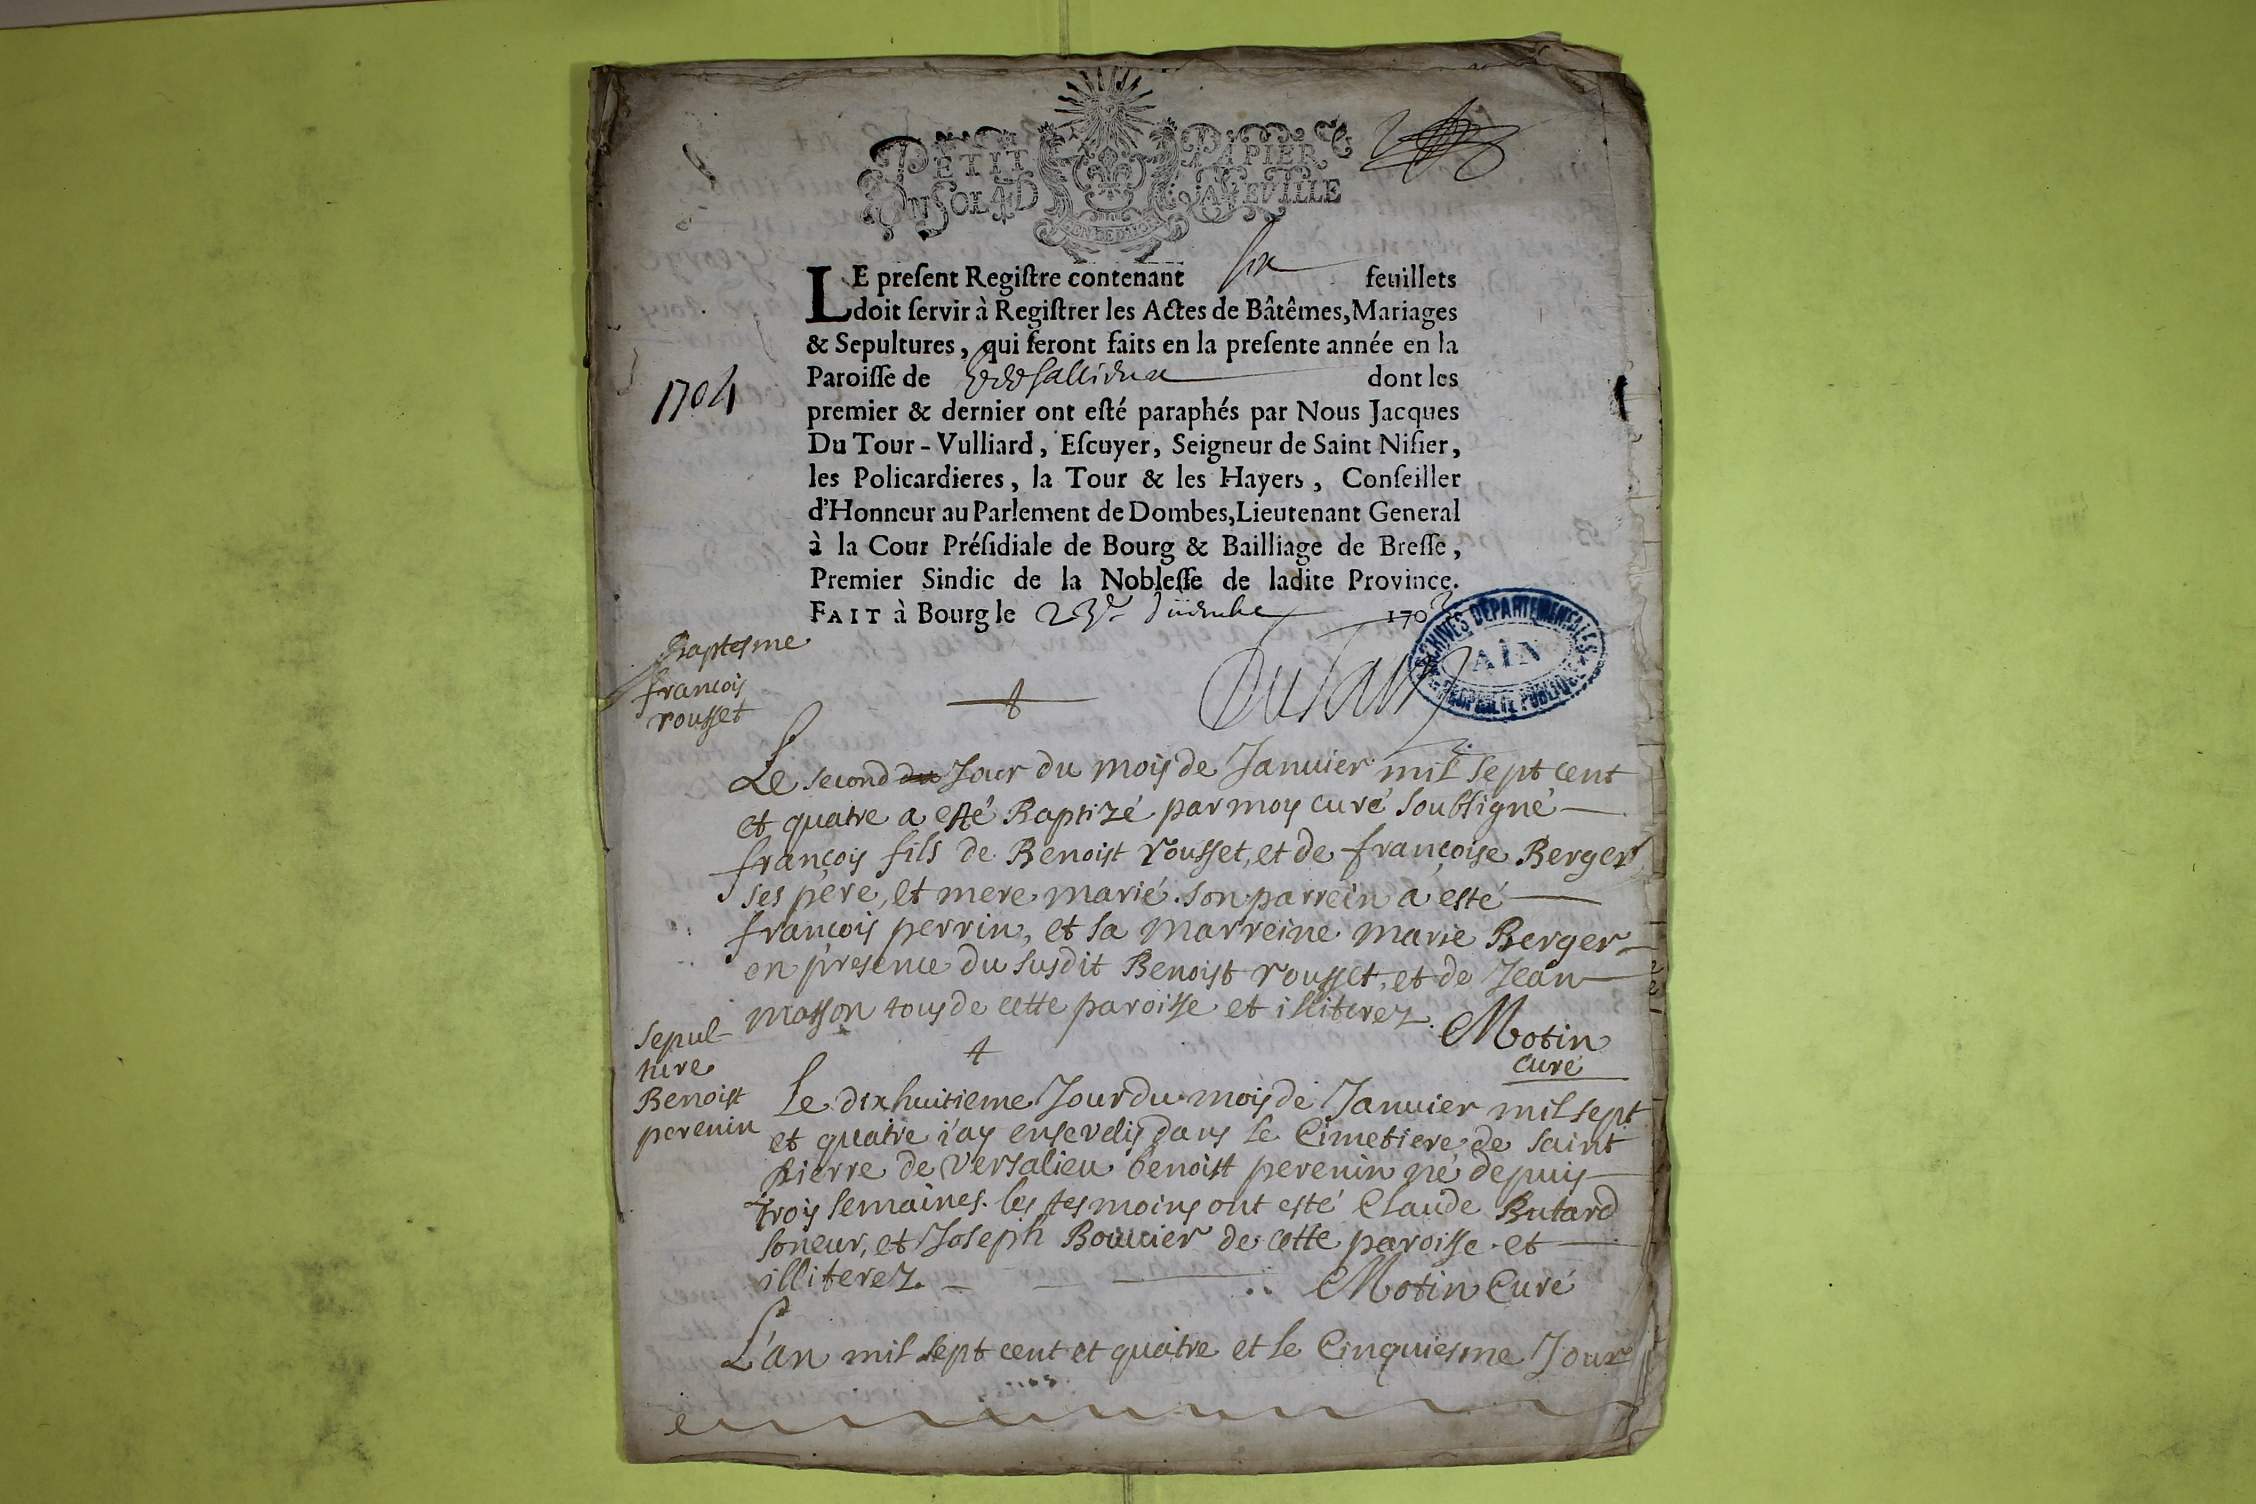 PETIT PAPIER
UN SOL 4D LA FEUILLE
GEN DE DIJON
LE preſent Regiſtre contenant six feuillets
doit ſervir à Regiſtrer les Actes de Bâtêmes, Mariages
& Sepultures, qui ſeront faits en la preſente année en la
Paroiſſe de dont les
1704
premier & dernier ont eſté paraphés par Nous Jacques
Du Tour-Vulliard, Eſcuyer, Seigneur de Saint Niſier,
les Policardieres, la Tour & les Hayers, Conſeiller
d'Honneur au Parlement de Dombes, Lieutenant General
à la Cour Préſidiale de Bourg & Bailliage de Breſſe,
Premier Sindic de la Nobleſſe de ladite Province.
FAIT à Bourg le 23e 1703
ARCHIVES DEPARTEMENTALES
AIN
PROPRIÉTÉ PUBLIQUE
Baptesme
francois
rousset
DuTour
Le second du Jour du mois de Januier mil sept cent
et quatre a esté Baptizé par moy curé soubsigné
françois fils de Benoist rousset, et de françoise Berger
ses père, et mere marié. son parrein a esté
françois perrin, et sa marreine marie Berger
en presence du susdit Benoist rousset, et de Jean
masson tous de cette paroisse et illiterez.
Motin
curé
Sepul-
ture
Benoist
perenin
Le dixhuitieme Jour du mois de Januier mil sept
et quatre i'ay ensevelis dans le Cimetiere de saint
pierre de Versalieu benoist perenin né depuis
trois semaines. les tesmoins ont esté Claude Butard
soneur, et Joseph Bouvier de cette paroisse et
illiterez. Motin Curé
L'an mil sept cent et quatre et le Cinquiesme Jour